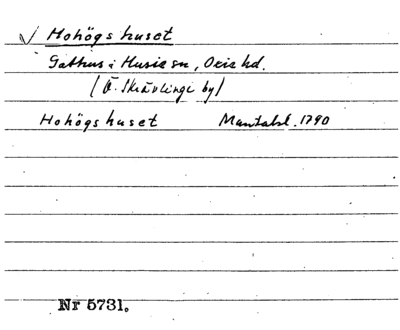 √ Hohögshuset
Gathus i Husie sn, Oxie hd.
(Ö. Skrävlinge by)
Hohögshuset Mantalsl. 1790
Nr 5731.